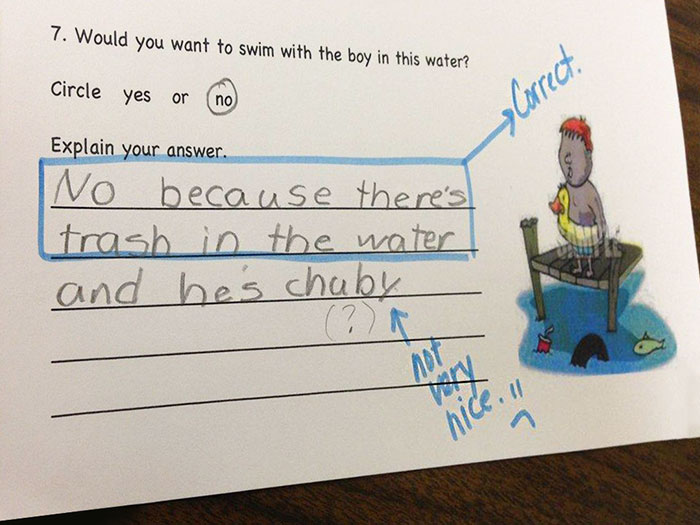 7. Would you want to swim with the boy in this water?
Circle yes or no
Correct.
Explain your answer.
No because there's
trash in the water
and he's chuby
(?)
not
very
nice.